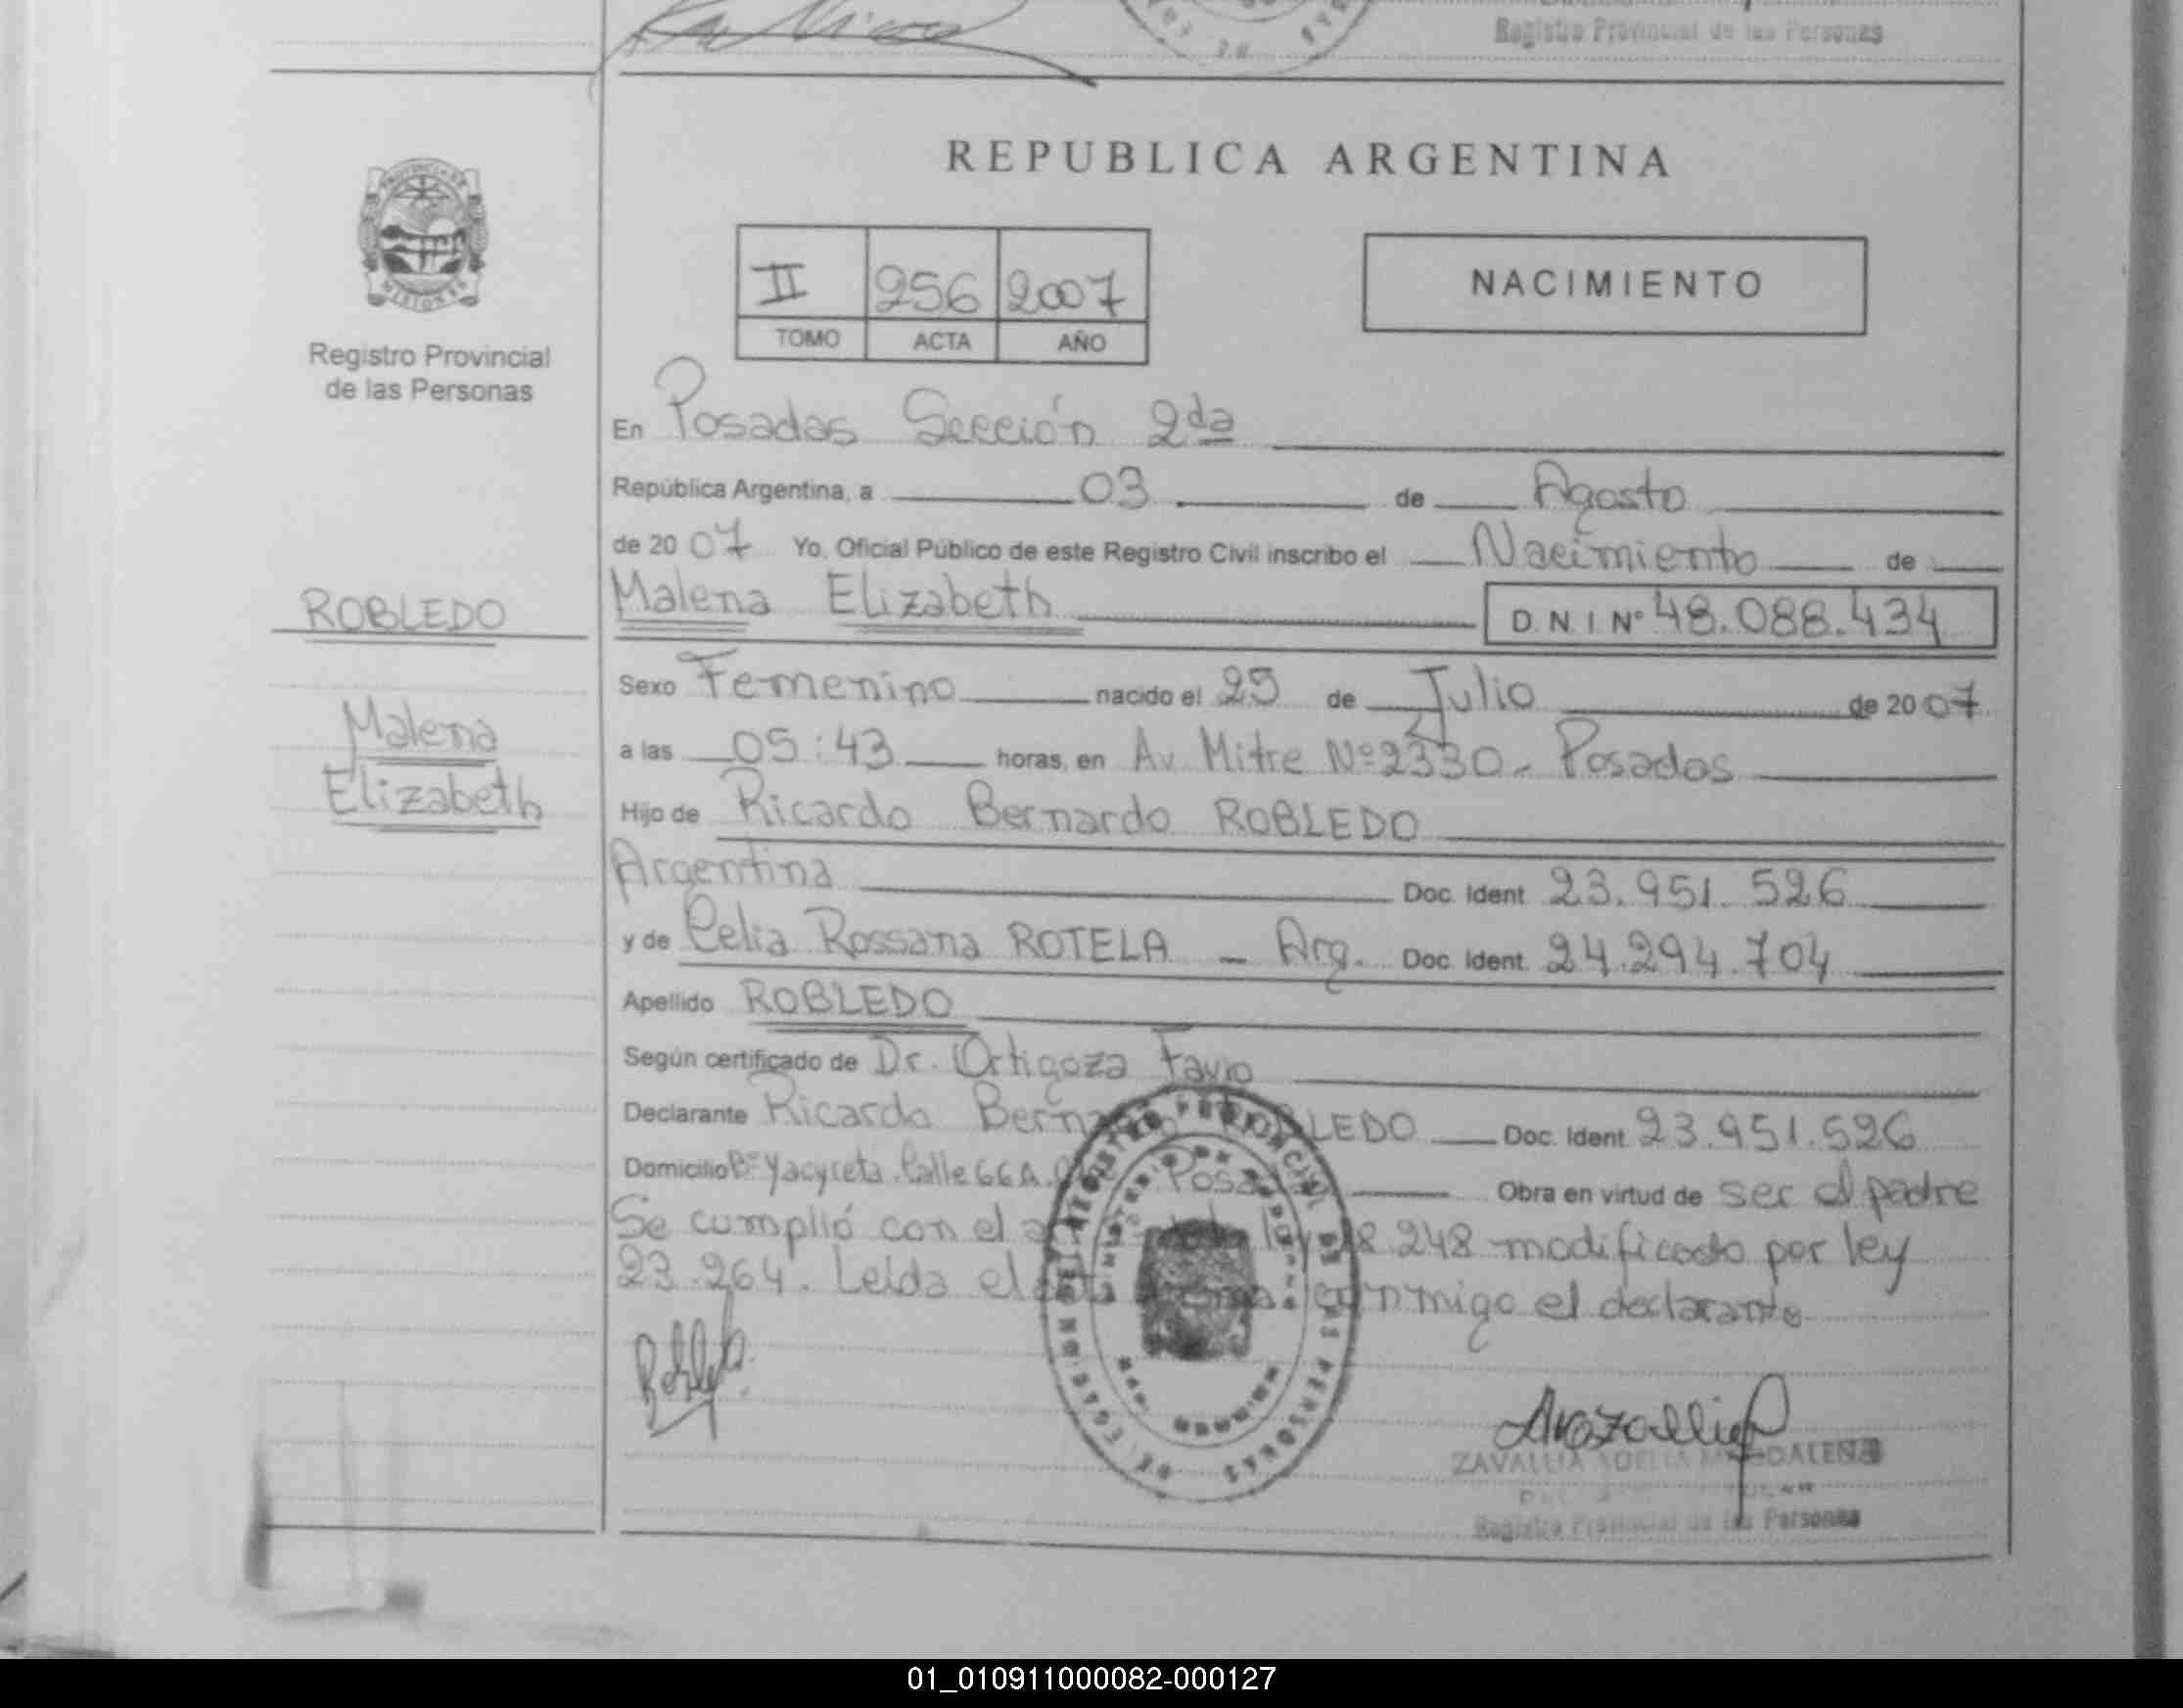 Registro Provincial de las Personas
REPUBLICA ARGENTINA
PROVINCIA DE
MISIONES
Registro Provincial
de las Personas
II 256 2007
TOMO ACTA AÑO
NACIMIENTO
En Posadas Sección 2da
República Argentina, a 03 de Agosto
de 2007 Yo, Oficial Público de este Registro Civil inscribo el Nacimiento de
ROBLEDO
Malena Elizabeth
D.N.I Nº 48.088.434
Malena
Elizabeth
Sexo Femenino nacido el 25 de Julio de 2007
a las 05:43 horas, en Av Mitre Nº 2330 - Posadas
Hijo de Ricardo Bernardo ROBLEDO
Argentina Doc. Ident. 23.951.526
y de Celia Rossana ROTELA - Arg. Doc. Ident. 24.294.704
Apellido ROBLEDO
Según certificado de Dr. Ortigoza Favio
Declarante Ricardo Bernardo ROBLEDO Doc. Ident. 23.951.526
Domicilio Bº Yacyreta. Calle 66A. Posadas Obra en virtud de ser el padre
Se cumplió con el ley 18.248 modificado por ley
23.264. Leída el acta firma conmigo el declarante
REGISTRO PROVINCIAL DE LAS PERSONAS
ZAVALLIA ADELIA MAGDALENA
Registro Provincial de las Personas
01_010911000082-000127